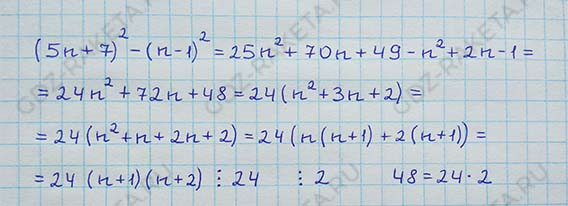 (5n+7)² - (n-1)² = 25n² + 70n + 49 - n² + 2n - 1 =
= 24n² + 72n + 48 = 24(n² + 3n + 2) =
= 24(n² + n + 2n + 2) = 24(n(n+1) + 2(n+1)) =
= 24 (n+1)(n+2) ⋮ 24 ⋮ 2 48 = 24 · 2
GDZ-RAKETA.RU